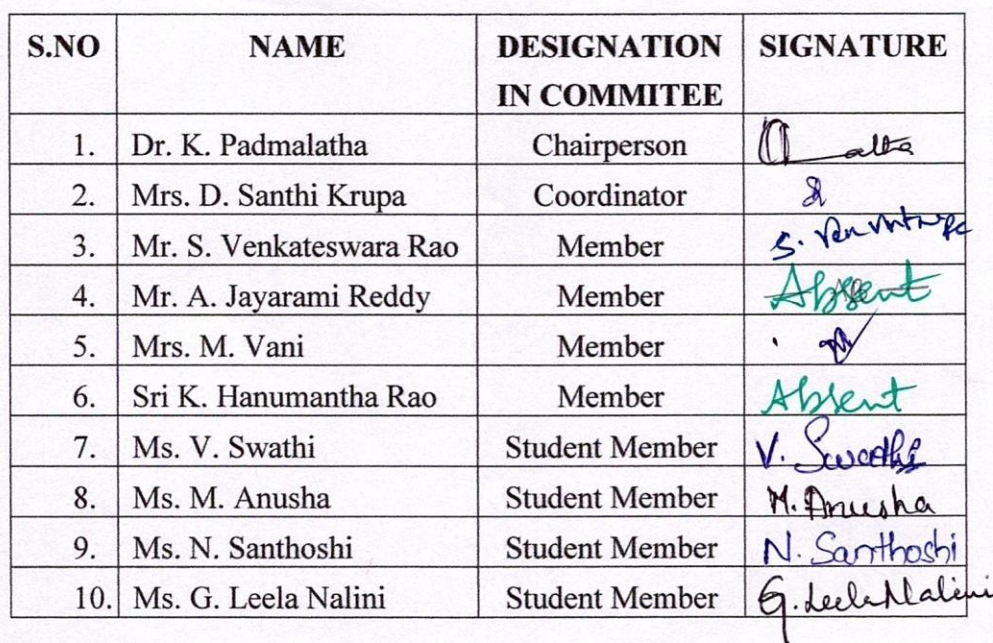 S.NO NAME DESIGNATION IN COMMITEE SIGNATURE
1. Dr. K. Padmalatha Chairperson
2. Mrs. D. Santhi Krupa Coordinator
3. Mr. S. Venkateswara Rao Member S.
4. Mr. A. Jayarami Reddy Member Absent
5. Mrs. M. Vani Member
6. Sri K. Hanumantha Rao Member Absent
7. Ms. V. Swathi Student Member V. Swathi
8. Ms. M. Anusha Student Member M. Anusha
9. Ms. N. Santhoshi Student Member N. Santhoshi
10. Ms. G. Leela Nalini Student Member G. Leela Nalini